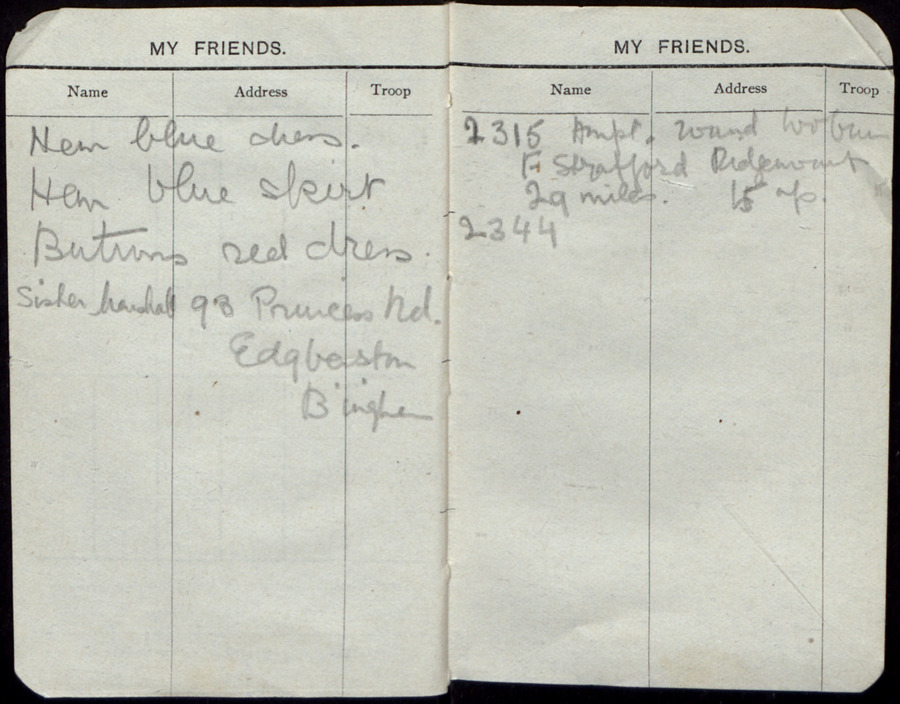 MY FRIENDS.
Name Address Troop
Hem blue dress.
Hem blue skirt
Buttons red dress.
Sister Marshall 98 Princess Rd.
Edgbaston
B'ingham
MY FRIENDS.
Name Address Troop
2315 Ampt. round Woburn
F. Strafford Ridgmount
29 miles. 15
2344